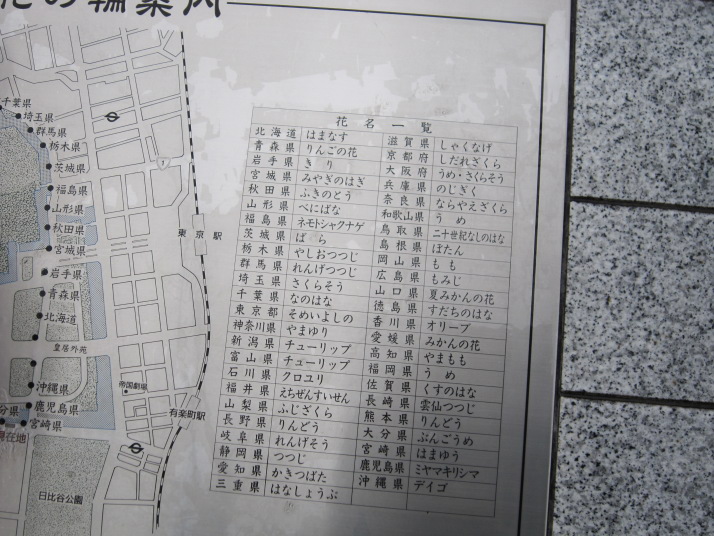 の輪案内
千葉県
埼玉県
群馬県
栃木県
茨城県
福島県
山形県
秋田県
宮城県
岩手県
青森県
北海道
皇居外苑
沖縄県
鹿児島県
宮崎県
分県
現在地
日比谷公園
帝国劇場
東京駅
有楽町駅
1
花名一覧
北海道 はまなす
青森県 りんごの花
岩手県 きり
宮城県 みやぎのはぎ
秋田県 ふきのとう
山形県 べにばな
福島県 ネモトシャクナゲ
茨城県 ばら
栃木県 やしおつつじ
群馬県 れんげつつじ
埼玉県 さくらそう
千葉県 なのはな
東京都 そめいよしの
神奈川県 やまゆり
新潟県 チューリップ
富山県 チューリップ
石川県 クロユリ
福井県 えちぜんすいせん
山梨県 ふじざくら
長野県 りんどう
岐阜県 れんげそう
静岡県 つつじ
愛知県 かきつばた
三重県 はなしょうぶ
滋賀県 しゃくなげ
京都府 しだれざくら
大阪府 うめ・さくらそう
兵庫県 のじぎく
奈良県 ならやえざくら
和歌山県 うめ
鳥取県 二十世紀なしのはな
島根県 ぼたん
岡山県 もも
広島県 もみじ
山口県 夏みかんの花
徳島県 すだちのはな
香川県 オリーブ
愛媛県 みかんの花
高知県 やまもも
福岡県 うめ
佐賀県 くすのはな
長崎県 雲仙つつじ
熊本県 りんどう
大分県 ぶんごうめ
宮崎県 はまゆう
鹿児島県 ミヤマキリシマ
沖縄県 デイゴ